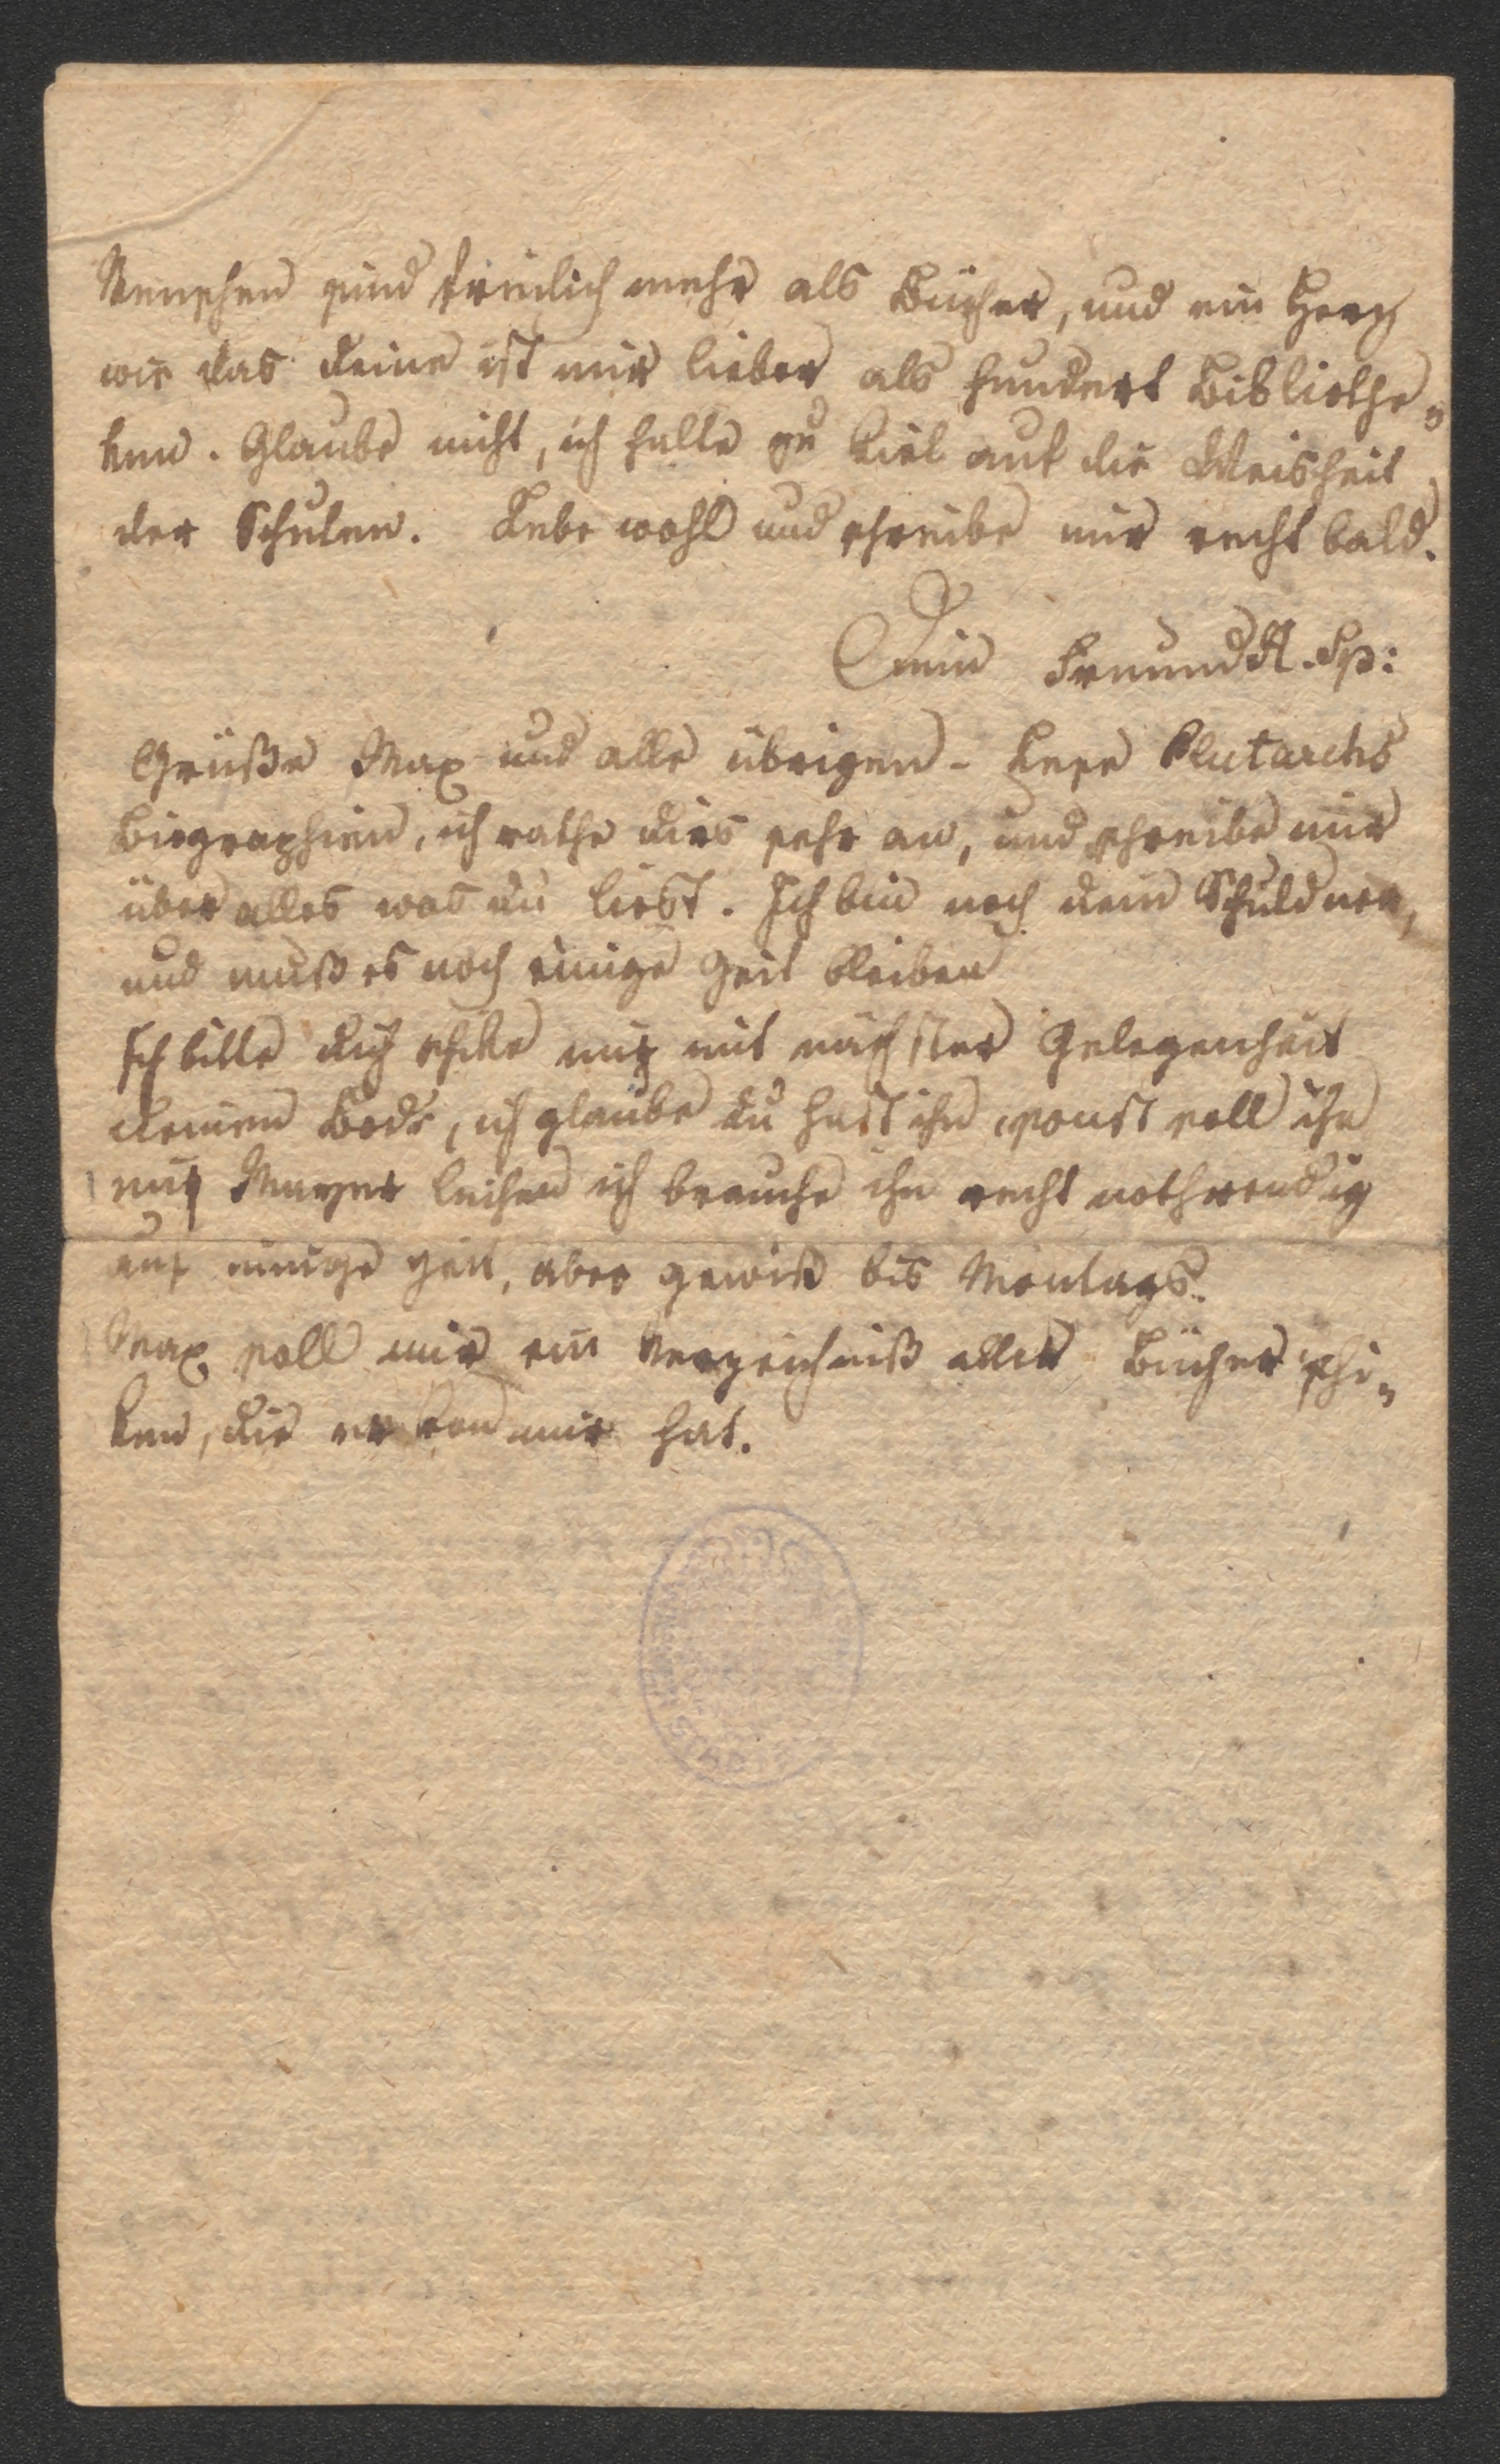 Menschen sind freilich mehr als Bücher, und ein Herz
wie das deine ist mir lieber als hundert Bibliothe-
ken. Glaube nicht, ich halte zu viel auf die Weisheit
der Schulen. Lebe wohl und schreibe mir recht bald.
Dein Freund A. Sp:
Grüße Max und alle übrigen - Lese Plutarchs
Biographien, ich rathe dirs sehr an, und schreibe mir
über alles was du liest. Ich bin noch dein Schuldner,
und muß es noch einige Zeit bleiben
Ich bitte dich schike mir mit nächster Gelegenheit
deinen Bode, ich glaube du hast ihn, sonst soll ihn
mir Mayer leihen ich brauche ihn recht nothwendig
auf einige Zeit, aber gewiß bis Montags.
Max soll mir ein Verzeichniß aller Bücher schi-
ken, die er von mir hat.